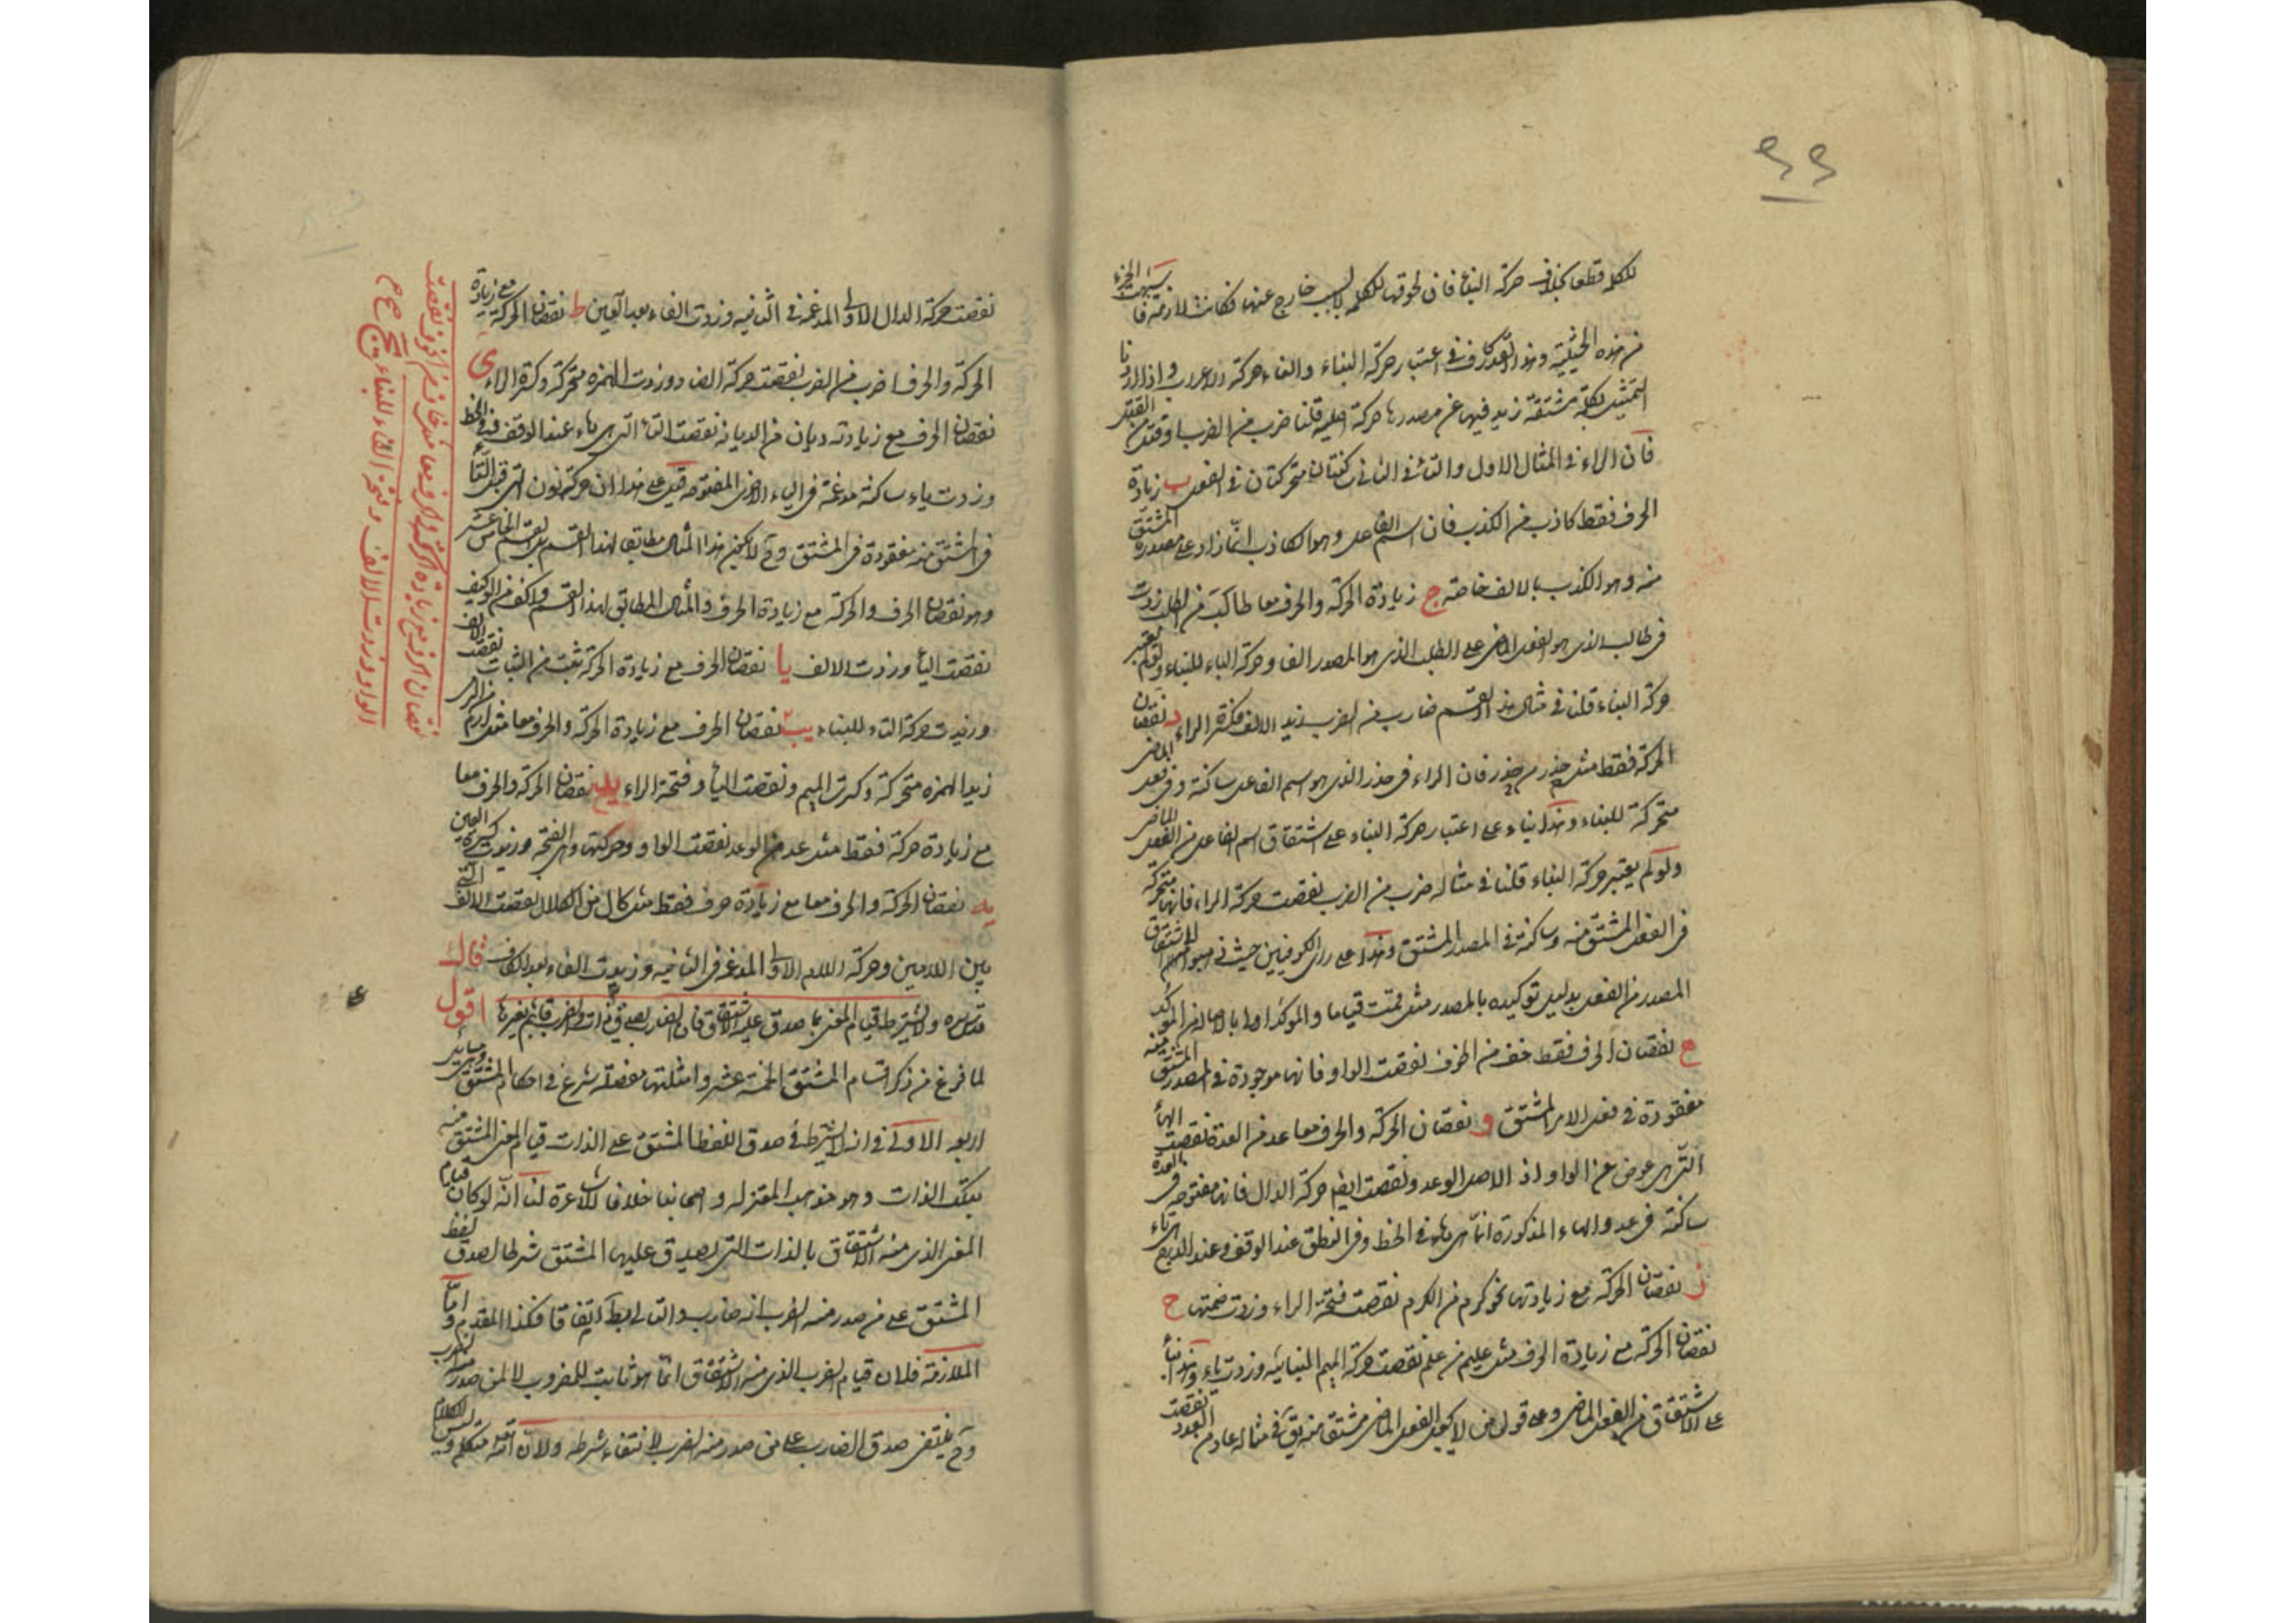 ۶۶
للكلمة قطعا بخلاف حركة البناء فان لحوقها للكلمة لا لسبب خارج عنها فكانت لازمة فاشبهت الجزء
من هذه الحيثية وهذا القدر كاف في اعتبار حركة البناء والغاء حركة الاعراب واذا اردنا
التمثيل بكلمة مشتقة زيد فيها عن مصدرها حركة قلنا ضرب من الضرب او قتل من القتل
فان الراء في المثال الاول والتاء في الثاني ساكنتان متحركتان في الفعل ب زيادة
الحرف فقط كاذب من الكذب فان اسم الفاعل وهو الكاذب انما زاد على مصدره المشتق
منه وهو الكذب بالالف خاصة ج زيادة الحركة والحرف معا طالب من الطلب زدت
في طالب الذي هو الفعل الماضي على الطلب الذي هو المصدر الفا وحركة الباء للبناء ولو لم يعتبر
حركة البناء قلنا في مثال هذا القسم ضارب من الضرب زيد الالف وكسرة الراء د نقصان
الحركة فقط مثل حذر من حذر فان الراء في حذر الذي هو اسم الفاعل ساكنة وفي فعل الماضي
متحركة للبناء وهذا بناء على اعتبار حركة البناء على اشتقاق اسم الفاعل من الفعل الماضي
ولو لم يعتبر حركة البناء قلنا في مثاله ضرب من الضرب نقصت حركة الراء فانها متحركة
في الفعل المشتق منه وساكنة في المصدر المشتق وهذا على راى الكوفيين حيث ذهبوا الى اشتقاق
المصدر من الفعل بدليل توكيده بالمصدر مثل قمت قياما والموكد اولى بالاصالة من الموكد
ه نقصان الحرف فقط خف من الخوف نقصت الواو فانها موجودة في المصدر المشتق منه
مفقودة في فعل الامر المشتق و نقصان الحركة والحرف معا عد من العدة نقصت الهاء
التي هي عوض عن الواو اذ الاصل الوعد ونقصت ايضا حركة الدال فانها مفتوحة في العدة
ساكنة في عد والهاء المذكورة انما هي هاء في الخط وفي النطق عند الوقف وعند الدرج هي تاء
ز نقصان الحركة مع زيادتها نحو كرم من الكرم نقصت فتحة الراء وزدت ضمتها ح
نقصان الحركة مع زيادة الحرف مثل عليم من علم نقصت حركة الميم البنائية وزدت ياء وهذا بناء
على الاشتقاق من الفعل الماضي وعلى قول من لا يجعل الفعل الماضي مشتقا منه يق في مثاله عاد من العدد نقصت
نقصت حركة الدال الاولى المدغمة في الثانية وزدت الفاء بعد العين ط نقصان الحركة مع زيادة
الحركة والحرف اضرب من الضرب نقصت حركة الضاد وزدت الهمزة متحركة وكسرة الراء ى
نقصان الحرف مع زيادته ديان من الديانة نقصت التاء التي هي هاء عند الوقف وفي الخط
وزدت ياء ساكنة مدغمة في الياء الاخرى المفتوحة قيل على هذا ان حركة نون التي قبل التاء
في المشتق منه مفقودة في المشتق وح لا يكون هذا المثال مطابقا لهذا القسم بل للقسم الخامس عشر
وهو نقصان الحرف والحركة مع زيادة الحرف والمثال المطابق لهذا القسم واكف من الوكيف
نقصت الياء وزدت الالف يا نقصان الحرف مع زيادة الحركة ثبت من الثبات نقصت الالف
وزيدت حركة التاء للبناء يب نقصان الحرف مع زيادة الحركة والحرف معا مثل ارم من الرمي
زيد الهمزة متحركة وكسرت الميم ونقصت الياء وفتحة الراء يد نقصان الحركة والحرف معا
مع زيادة حركة فقط مثل عد من الوعد نقصت الواو وحركتها وهي الفتحة وزيدت كسرة العين
يه نقصان الحركة والحرف معا مع زيادة حرف فقط مثل كال من الكلال نقصت الالف التي
بين اللامين وحركة اللام الاولى المدغمة في الثانية وزيدت الفاء بعد الكاف قال
قدس سره ولا يشترط قيام المعنى بما صدق عليه الاشتقاق فان الضارب يصدق على ذات والضرب قائم بغيرها اقول
لما فرغ من ذكر اقسام المشتق الخمسة عشر وامثلتها مفصلة شرع في احكام المشتق ومسائله
اربعة الاولى في انه لا يشترط في صدق اللفظ المشتق على الذات قيام المعنى المشتق منه
بتلك الذات وهو مذهب المعتزلة واصحابنا خلافا للاشاعرة لنا انه لو كان قيام
المعنى الذي منه الاشتقاق بالذات التي يصدق عليها المشتق شرطا لصدق لفظ
المشتق على من صدر منه الضرب انه ضارب والتالى باطل اتفاقا فكذا المقدم واما
الملازمة فلان قيام الضرب الذي منه الاشتقاق انما هو ثابت للمضروب لا لمن صدر منه الضرب
وح ينتفى صدق الضارب على من صدر منه الضرب لانتفاء شرطه ولان الله متكلم وليس الكلام
نقصان الحرف مع زيادة الحركة والحرف معا مثل خاف من الخوف نقصت
الواو وزدت الالف وفتح الفاء للبناء صح